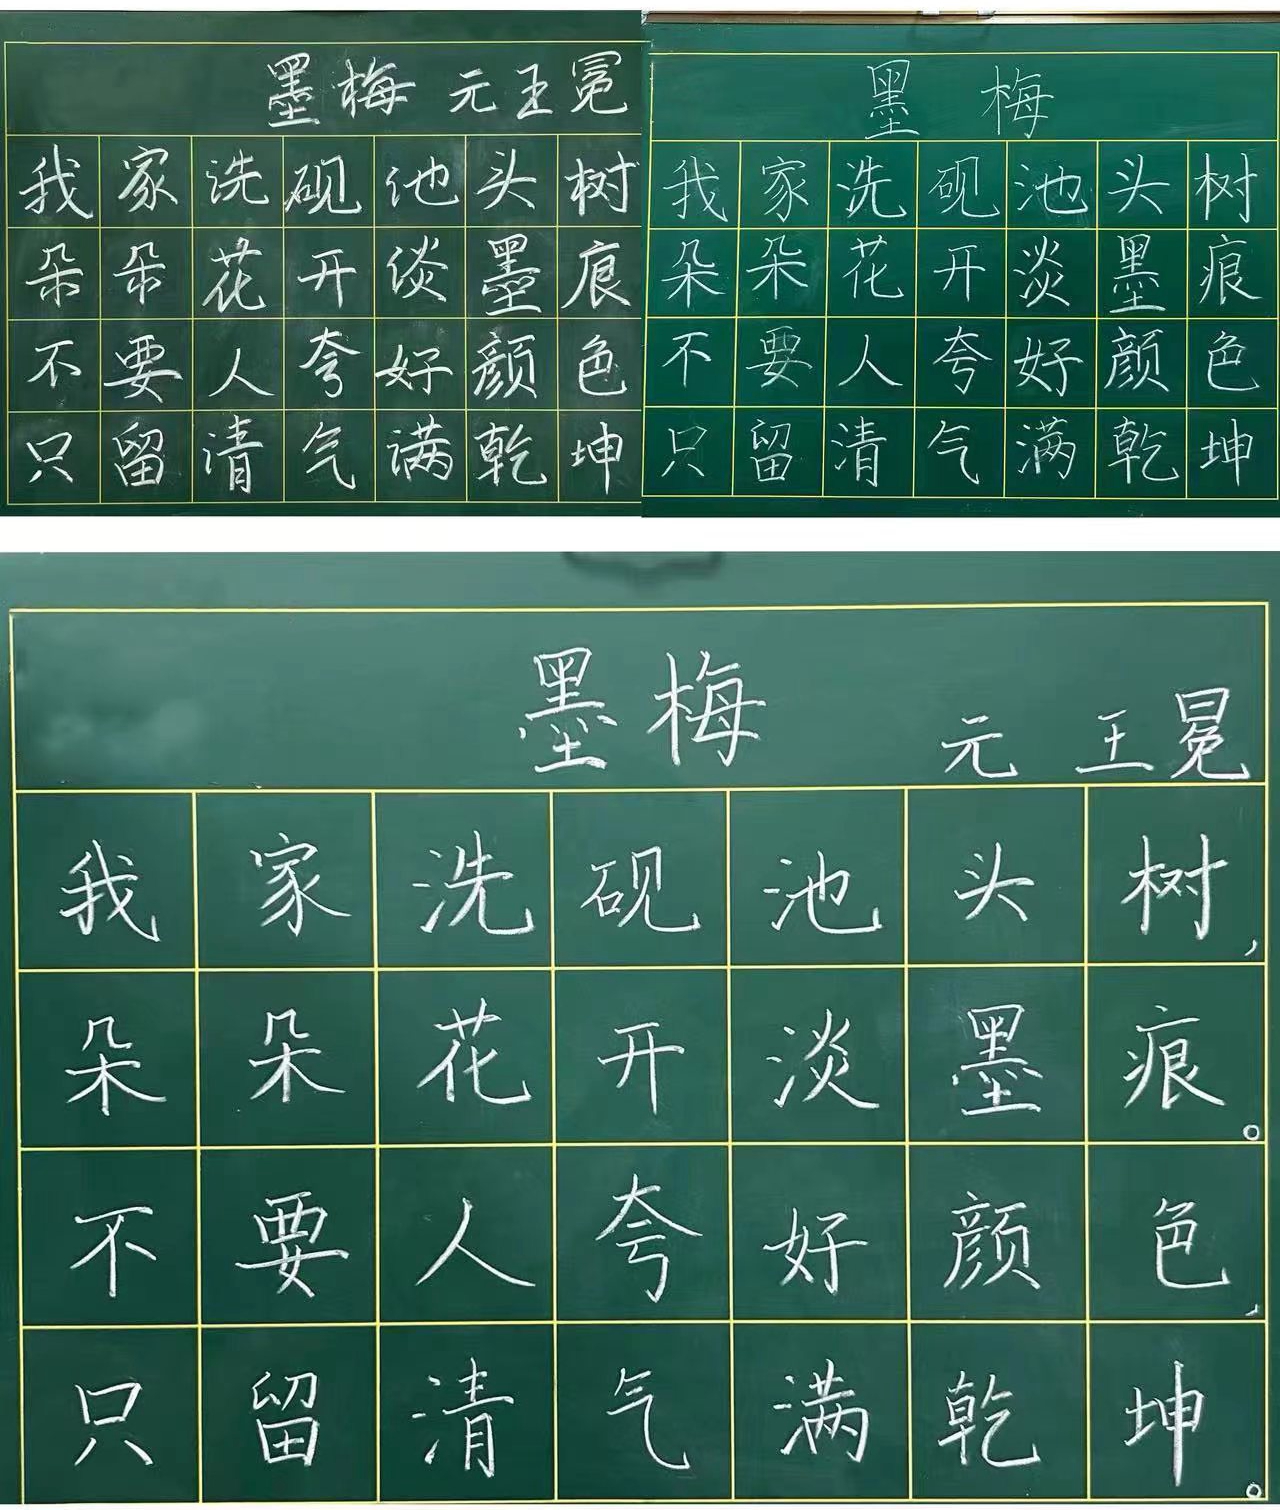 墨梅 元 王冕
我家洗砚池头树
朵朵花开淡墨痕
不要人夸好颜色
只留清气满乾坤
墨梅
我家洗砚池头树
朵朵花开淡墨痕
不要人夸好颜色
只留清气满乾坤
墨梅 元 王冕
我家洗砚池头树,
朵朵花开淡墨痕。
不要人夸好颜色,
只留清气满乾坤。